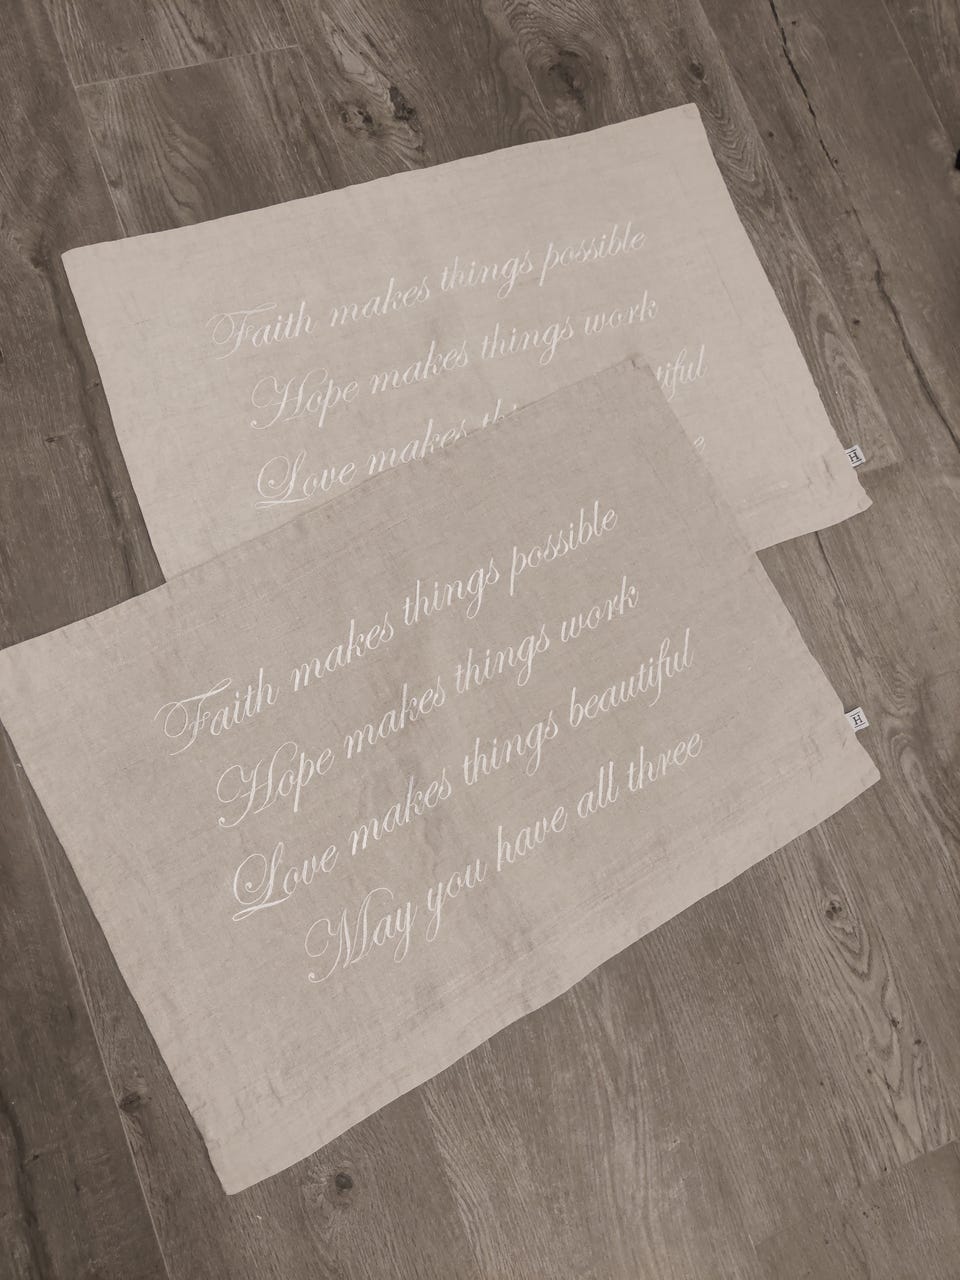 Faith makes things possible
Hope makes things work
Love makes thi tiful
e
H
Faith makes things possible
Hope makes things work
Love makes things beautiful
May you have all three
H